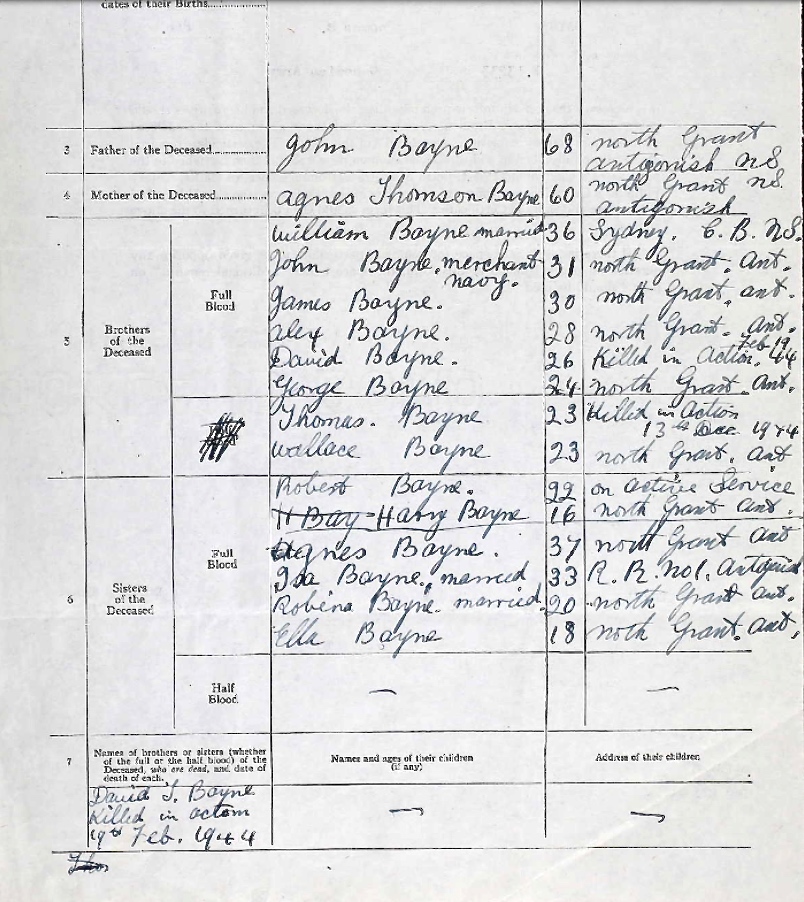 dates of their Births
3 Father of the Deceased John Bayne 68 north Grant
antigonish n.S
4 Mother of the Deceased agnes Thomson Bayne 60 north Grant n.S.
antigonish
5 Brothers of the Deceased Full Blood
William Bayne married 36 Sydney. C. B. N.S.
John Bayne, merchant navy. 31 north Grant. Ant.
James Bayne. 30 north Grant, ant.
alex Bayne. 28 north Grant. Ant.
David Bayne. 26 Killed in Action. Feb 19 44
George Bayne 24 north Grant. Ant.
Thomas. Bayne 23 Killed in Action
13th Dec 1944
Wallace Bayne 23 north Grant. ant
Robert Bayne. 22 on active Service
H Bay Harry Bayne 16 north Grant ant.
6 Sisters of the Deceased Full Blood
Agnes Bayne. 37 north Grant ant
Isa Bayne, married 33 R. R. No1. Antigonish
Robina Bayne. married. 20 north Grant. ant.
Ella Bayne 18 noth Grant. ant.
Half Blood. — —
7 Names of brothers or sisters (whether
of the full or the half blood) of the
Deceased, who are dead, and date of
death of each.
Names and ages of their children
(if any)
Address of their children.
David T. Bayne
Killed in actom
19th Feb. 1944
— —
Thos